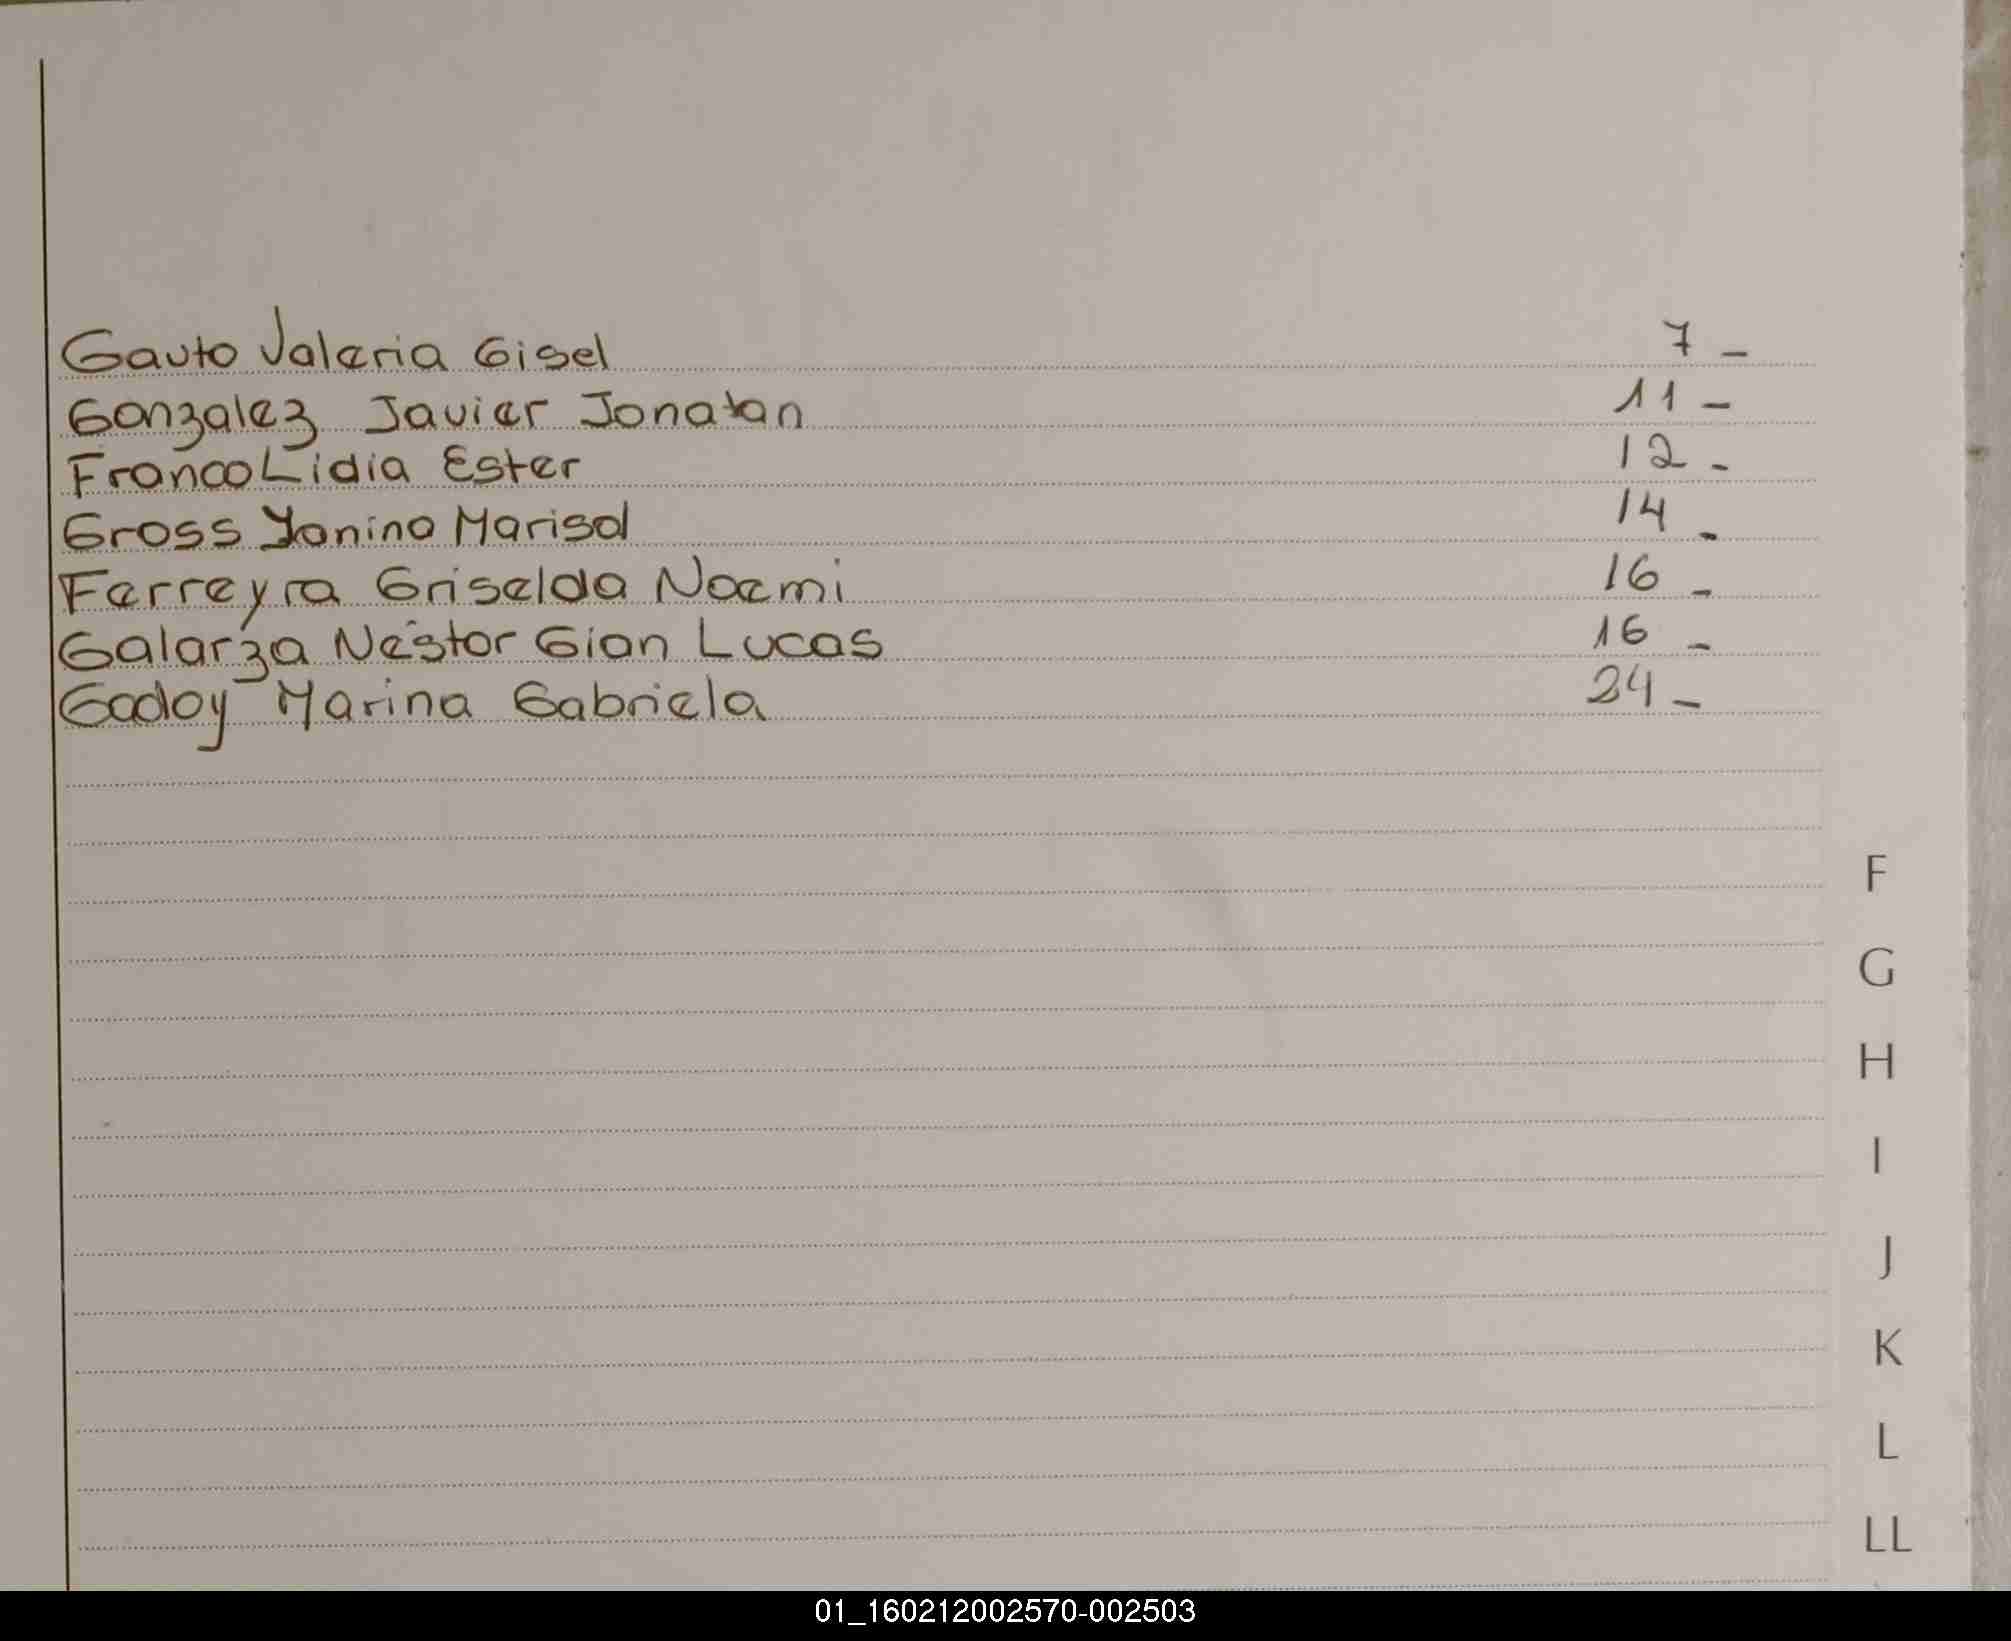 Gauto Valeria Gisel 7 -
Gonzalez Javier Jonatan 11 -
Franco Lidia Ester 12 -
Gross Yanina Marisol 14 -
Ferreyra Griselda Noemi 16 -
Galarza Néstor Gian Lucas 16 -
Godoy Marina Gabriela 24 -
F
G
H
I
J
K
L
LL
01_160212002570-002503